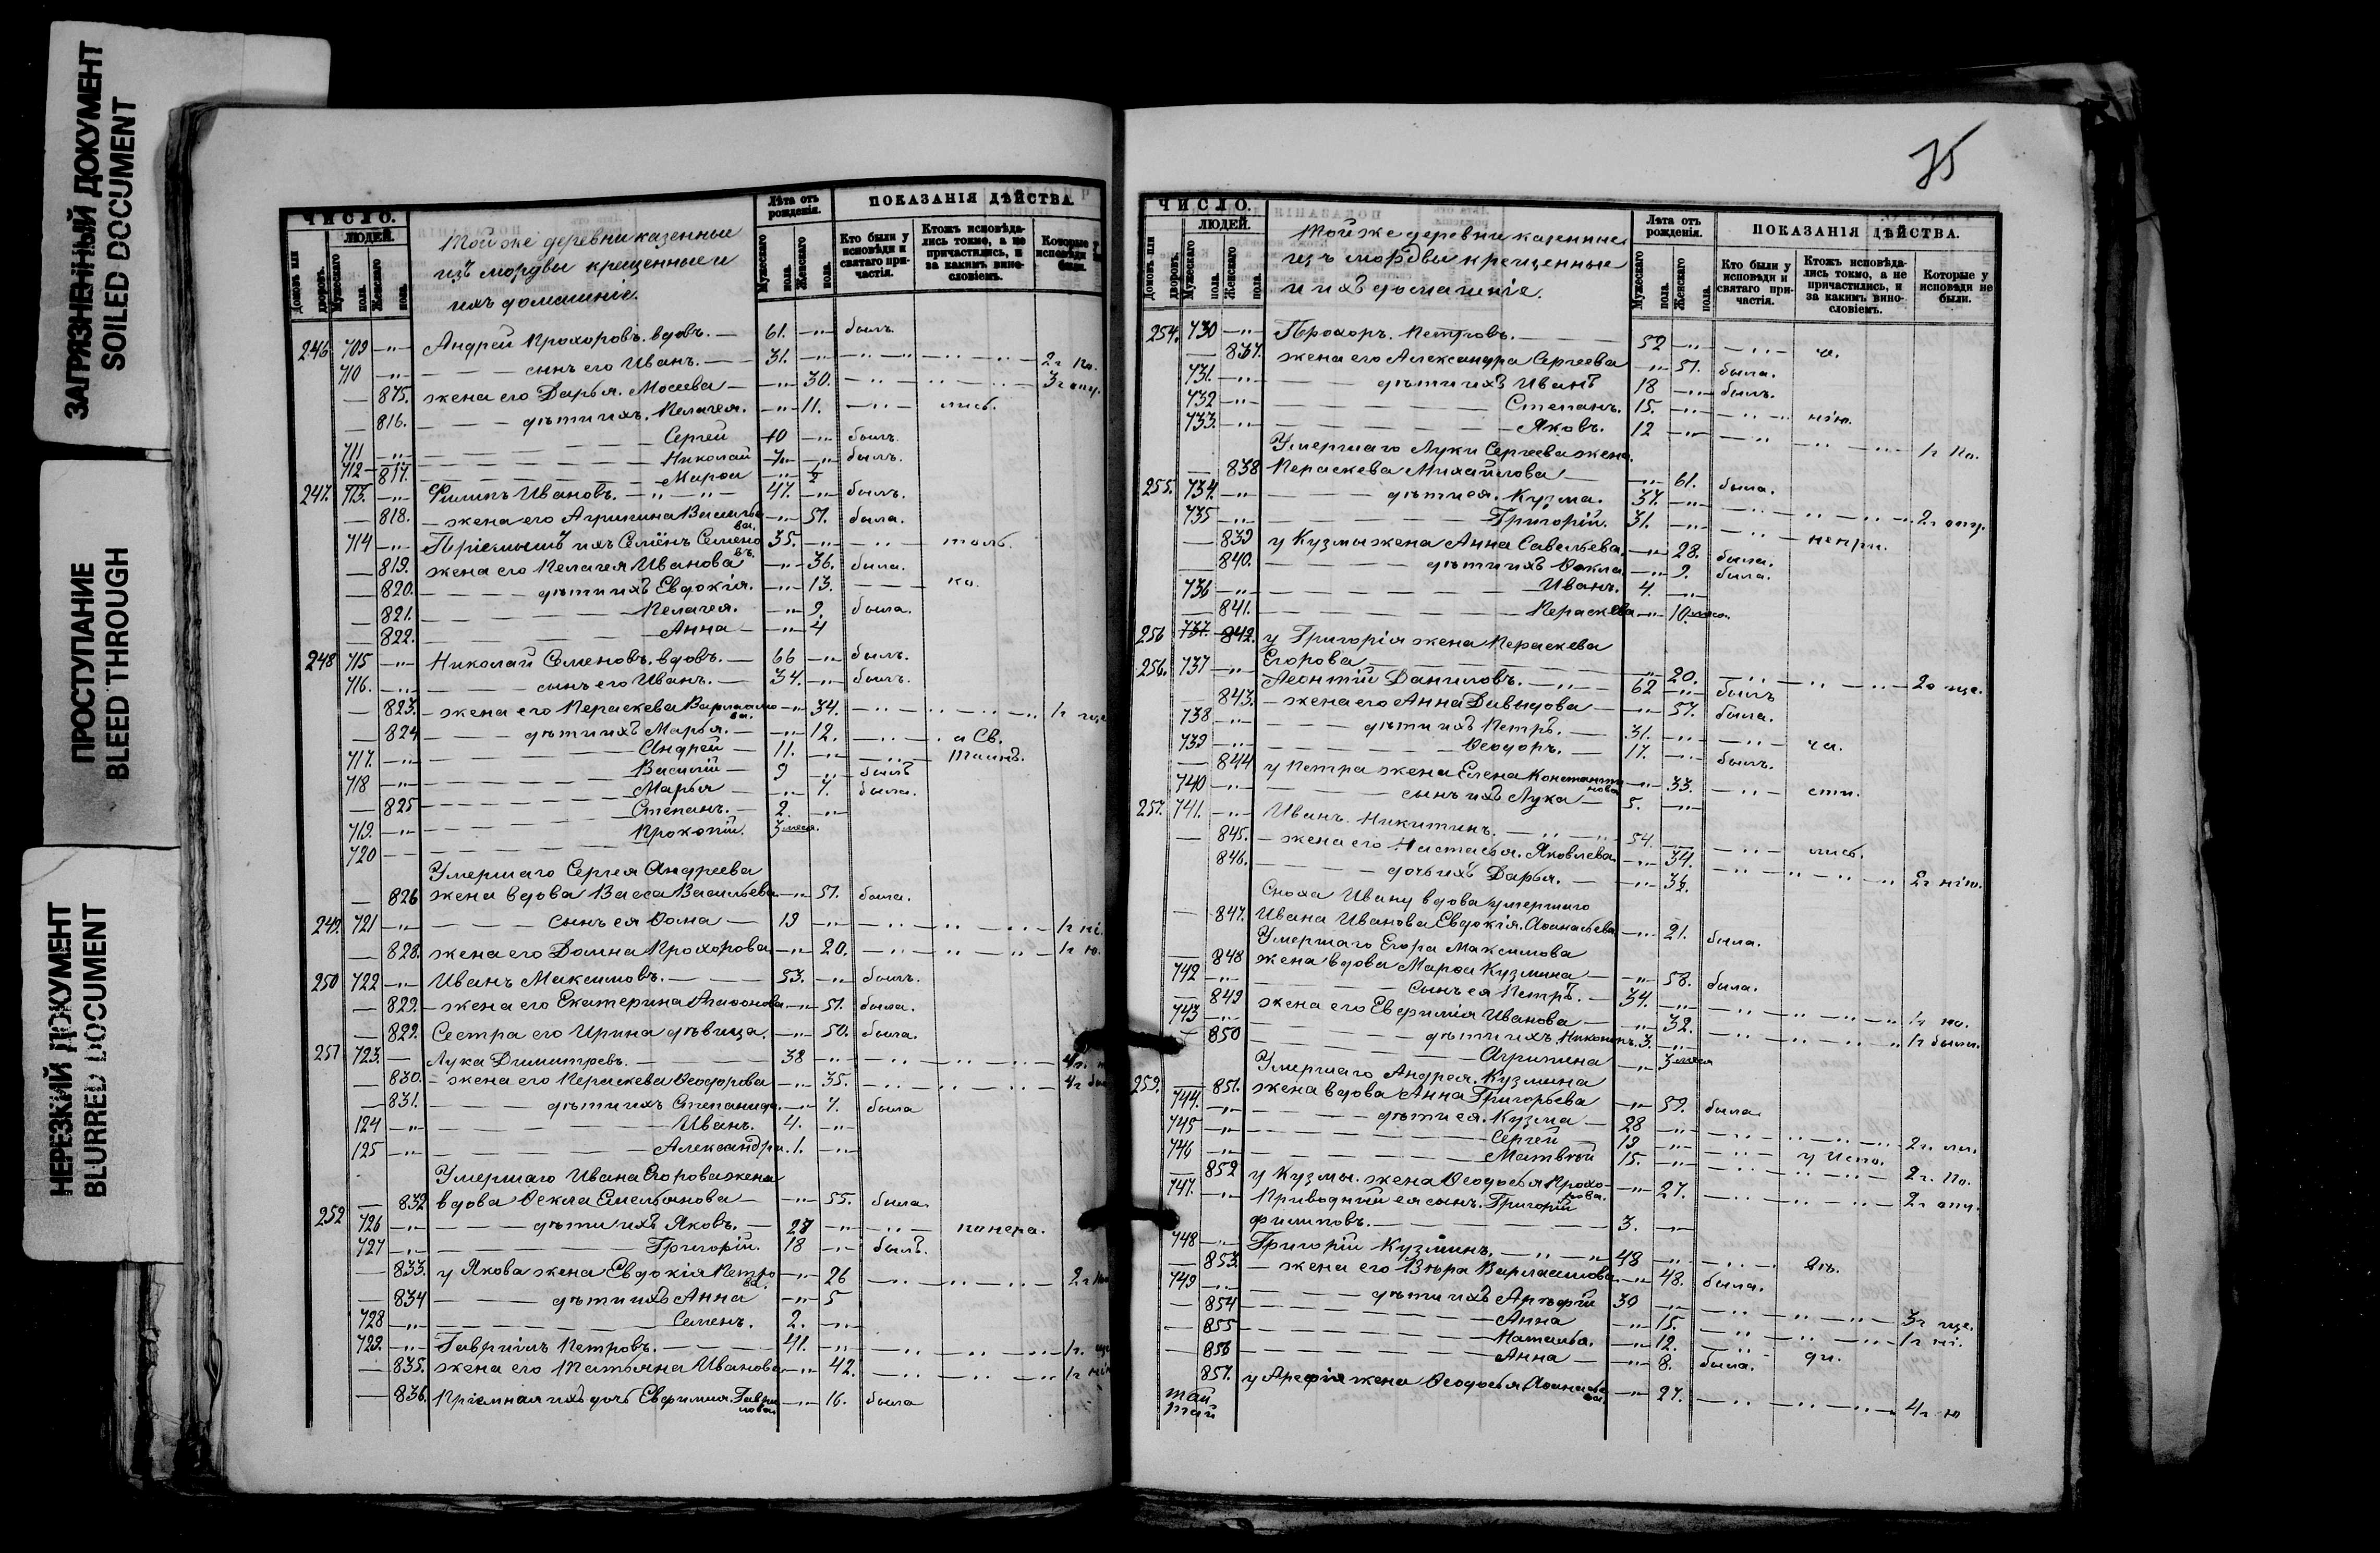 ЗАГРЯЗНЕННЫЙ ДОКУМЕНТ
SOILED DOCUMENT
ПРОСТУПАНИЕ
BLEED THROUGH
НЕРЕЗКИЙ ДОКУМЕНТ
BLURRED DOCUMENT
ЧИСЛО.
ЛЮДЕЙ.
Домовъ или дворовъ.
Мужескаго пола.
Женскаго пола.
Той же деревни казенные
изъ мордвы крещенные и
ихъ домашніе.
Лѣта отъ рожденія.
Мужескаго пола.
Женскаго пола.
ПОКАЗАНІЯ ДѢЙСТВА.
Кто были у исповѣди и святаго причастія.
Ктожъ исповѣдались токмо, а не причастились, и за какимъ винословіемъ.
Которые у исповѣди не были.
246 709 —"— Андрей Прохоровъ. вдовъ. — 61. —"— былъ
710 —"— сынъ его Иванъ. — 31. —"— 2 г По.
— 815. жена его Дарья. Мосеева — —"— 30. 3 г опу.
— 816. — дѣти ихъ. Пелагея. —"— 11. —"— лисб.
711 —"— Сергей 10 —"— былъ.
712 —"— Николай 7 —"— былъ.
— 817. Марѳа —"— ½
247. 713. —"— Филипъ Ивановъ. —"—"— 47. —"— былъ.
— 818. — жена его Агрипина Василье ва. —"— 51. была.
714 —"— Пріемышъ ихъ Семёнъ Семено въ. 35. —"— толь.
— 819. жена его Пелагея Иванова —"— 36. была.
— 820. — дѣти ихъ Евдокія. —"— 13. — ко.
— 821. — Пелагея. —"— 9. была.
— 822. — Анна —"— 4
248 715 —"— Николай Семеновъ. вдовъ. — 66 —"— былъ.
716. —"— сынъ его Иванъ. — 34. —"— былъ.
— 823. — жена его Пераскева Варлаамо ва. —"— 34. 1 г
— 824 — дѣти ихъ Марья. — —"— 12. —"— и Св.
717. —"— Андрей — 11. —"— Таинъ.
718 —"— Василій — 9 —"— былъ
— 825 Марья — —"— 7. была.
719. —"— Степанъ. — 2. —"—
720 — Прокопій. 3 меся.
Умершаго Сергея Андреева
— 826 жена вдова Васса Васильева —"— 51. была.
249. 721 —"— сынъ ея Ѳома — 19 —"— 1 г ні.
— 828. жена его Домна Прохорова —"— 20. 1 г ю.
250 722 —"— Иванъ Максимовъ. — 53. —"— былъ.
— 829. — жена его Екатерина Агаѳонова —"— 51. была.
— 829. Сестра его Ирина дѣвица. —"— 50. была.
251 723. — Лука Димитровъ. — 38 —"—
— 830. — жена его Пераскева Ѳеодорова —"— 35. 4 г
— 831. — дѣти ихъ Степанида. —"— 7. была
124 —"— Иванъ. 4. —"—
125 —"— Александръ. 1. —"—
Умершаго Ивана Егорова жена
— 832 вдова Ѳекла Емельянова — —"— 55. была.
252 726 —"— дѣти ихъ Яковъ. — 27 —"— понера.
727 —"— Григорій. 18 —"— былъ.
— 833. у Якова жена Евдокія Петро ва. —"— 26 2 г
— 834 — дѣти ихъ Анна —"— 5
728 —"— Семенъ. 2. —"—
729. —"— Гаврiилъ Петровъ. — 41. —"— 1 г.
— 835. жена его Татьяна Иванова —"— 42. 1 г
— 836. Пріемная ихъ дочь Евфимия. Гаври лова. —"— 16. была
75
ЧИСЛО.
ЛЮДЕЙ.
Домовъ или дворовъ.
Мужескаго пола.
Женскаго пола.
Той же деревни казенные
изъ мордвы крещенные
и ихъ домашніе.
Лѣта отъ рожденія.
Мужескаго пола.
Женскаго пола.
ПОКАЗАНІЯ ДѢЙСТВА.
Кто были у исповѣди и святаго причастія.
Ктожъ исповѣдались токмо, а не причастились, и за какимъ винословіемъ.
Которые у исповѣди не были.
254. 730 —"— Прохоръ. Петровъ. — 52 —"—
— 837. жена его Александра Сергеева —"— 51. была.
731. —"— дѣти ихъ Иванъ 18 —"— былъ.
732 —"— Степанъ. 15. —"— нію.
733. —"— Яковъ. 12 —"— 1 г По.
Умершаго Луки Сергеева жена.
— 838 Пераскева Михайлова — —"— 61. была.
255. 734. —"— дѣти ея. Кузма. 37. —"— 2 г опу.
735 —"— Григорій. 31. —"— непри.
— 839 у Кузмы жена Анна Савельева. —"— 28. была.
— 840. — дѣти ихъ Ѳекла —"— 9. была.
736 —"— Иванъ. 4. —"—
— 841. Пераскева —"— 10 меся.
256 737. 842. у Григорія жена Пераскева
Егорова — —"— 20. 2 г
256. 737 —"— Леонтій Даниловъ. —"— 62 —"— былъ
— 843. — жена его Анна Давыдова — —"— 57. была.
738 —"— дѣти ихъ Петръ. — 31. —"—
739 —"— Ѳеодоръ. — 17. —"— былъ.
— 844 у Петра жена Елена Константи нова —"— 33. сти.
740 —"— сынъ ихъ Лука — 5. —"—
257. 741. —"— Иванъ. Никитинъ. —"— 54. лисб.
— 845. — жена его Настасья. Яковлева. —"— 34. 2 г нію.
— 846. — дочь ихъ Дарья. — —"—
Сноха Ивану вдова умершаго
— 847. Ивана Иванова Евдокія. Аѳанасьева —"— 21. была.
Умершаго Егора Максимова
— 848 жена вдова Марѳа Кузмина — —"— 58. была.
742 —"— Сынъ ея Петръ. — 34. —"— 1 г по.
— 849 жена его Евфимія Иванова — —"— 32. 1 г
743 —"— дѣти ихъ. Никонъ. 3. —"—
— 850 Агрипина —"— 3 меся
Умершаго Андрея. Кузмина
259. — 851. жена вдова Анна Григорьева —"— 59. была.
744. —"— дѣти ея. Кузма — 28 —"— 2 г.
745 —"— Сергей — 19 —"— у Испо. 2 г. По.
746 —"— Матвѣй 15. —"—
— 852 у Кузмы. жена Ѳеодосья Прохо рова. —"— 27. 2 г опу.
747. —"— Приводный ея сынъ. Григорій
филиповъ. — 3. —"—
748 —"— Григорій Кузминъ. —"— 48 —"—
— 853. — жена его Вѣра Варлаамова —"— 48. была.
749 —"— дѣти ихъ Арефій 30 —"— 3 г
— 854 Анна —"— 15. 1 г ні.
— 855 Наталья. —"— 12.
— 856 Анна — —"— 8. была.
857. у Арефія жена Ѳеодосья Аѳанасье ва. —"— 27. 4 г ю